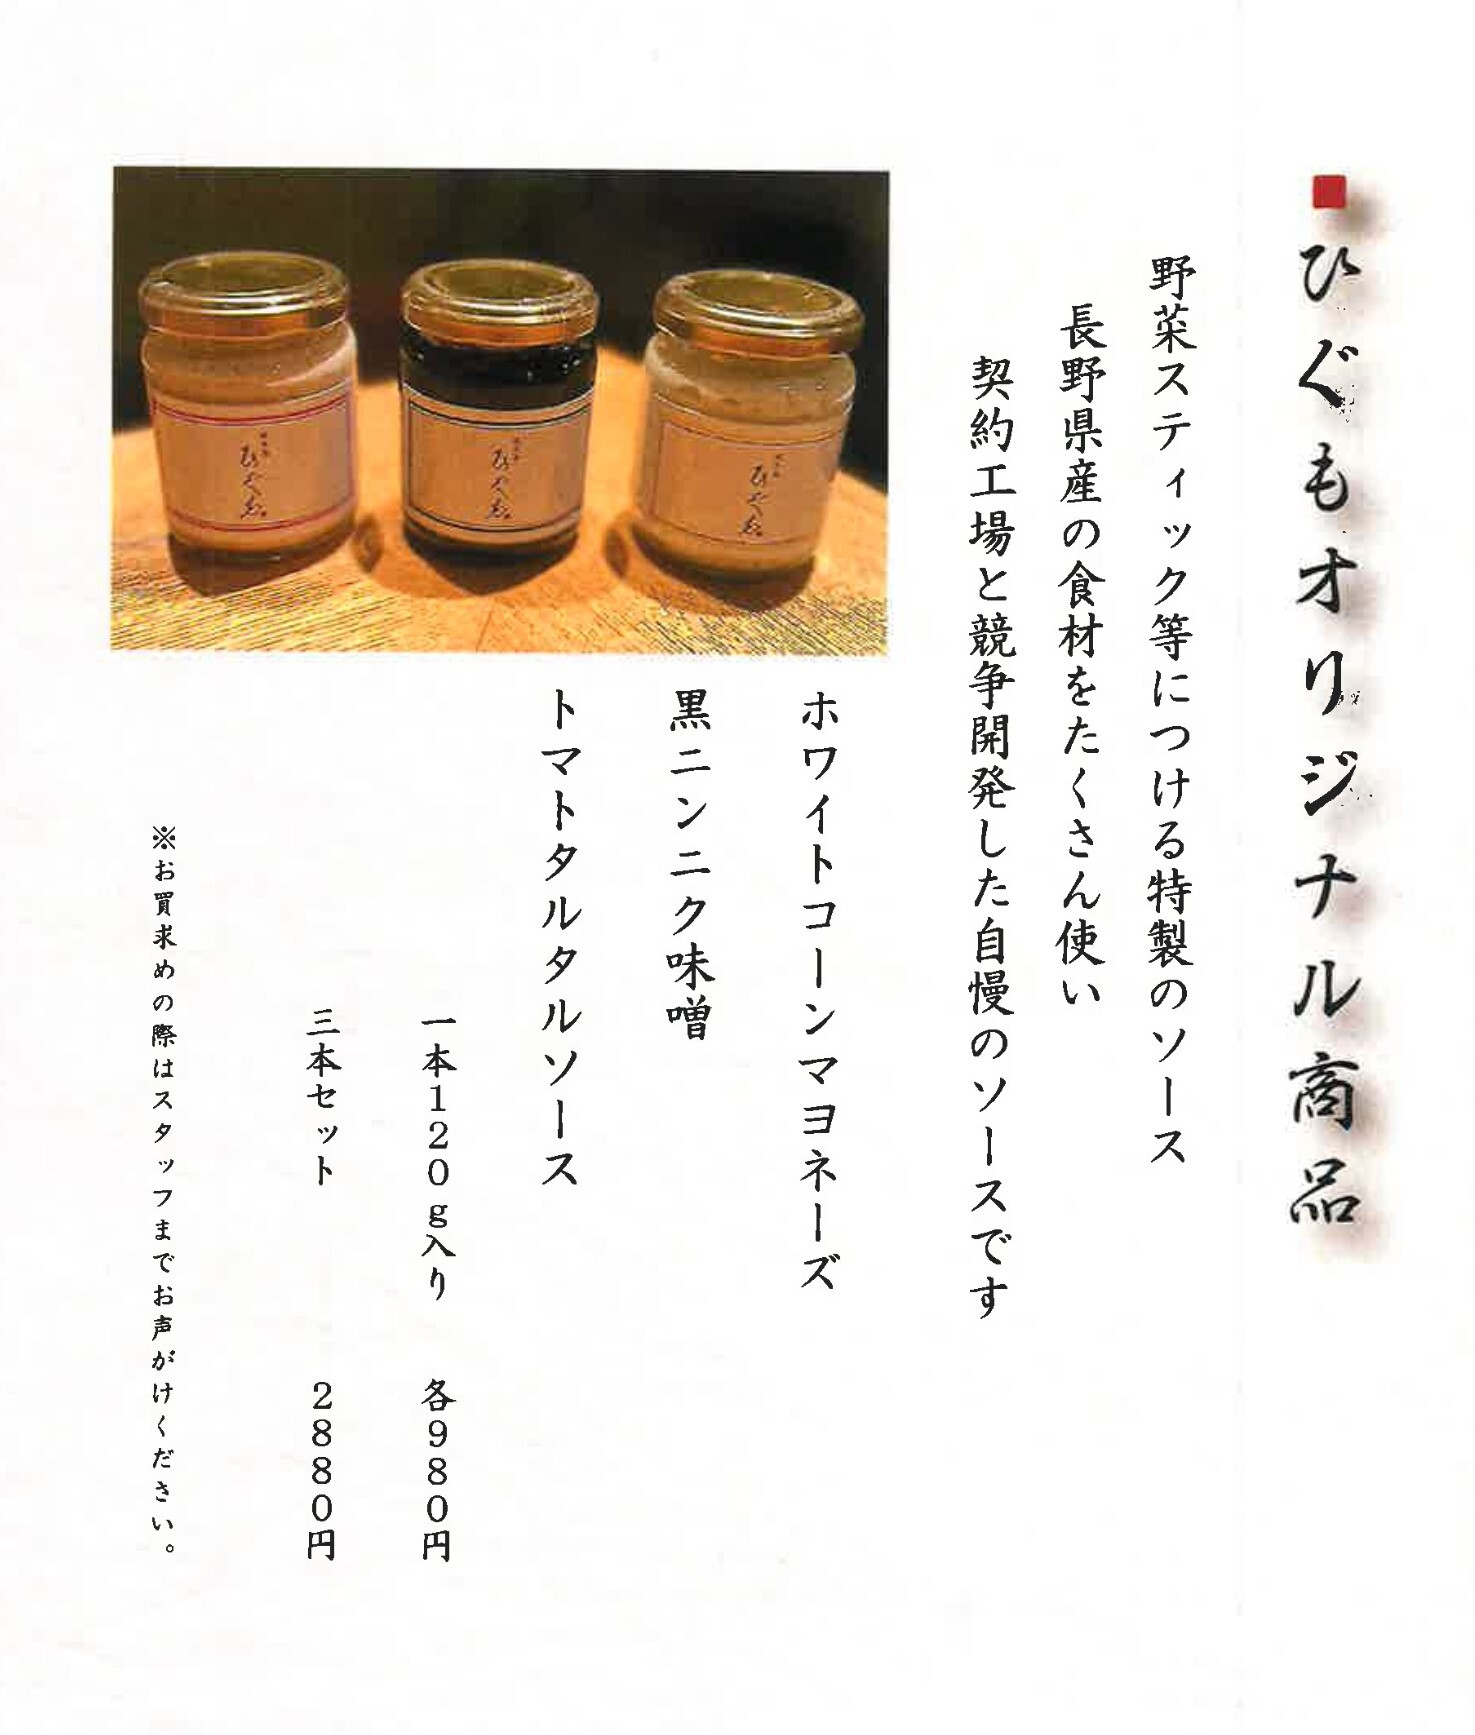 ■ひぐもオリジナル商品
野菜スティック等につける特製のソース
長野県産の食材をたくさん使い
契約工場と競争開発した自慢のソースです
ホワイトコーンマヨネーズ
黒ニンニク味噌
トマトタルタルソース
一本120g入り 各980円
三本セット 2880円
※お買求めの際はスタッフまでお声がけください。